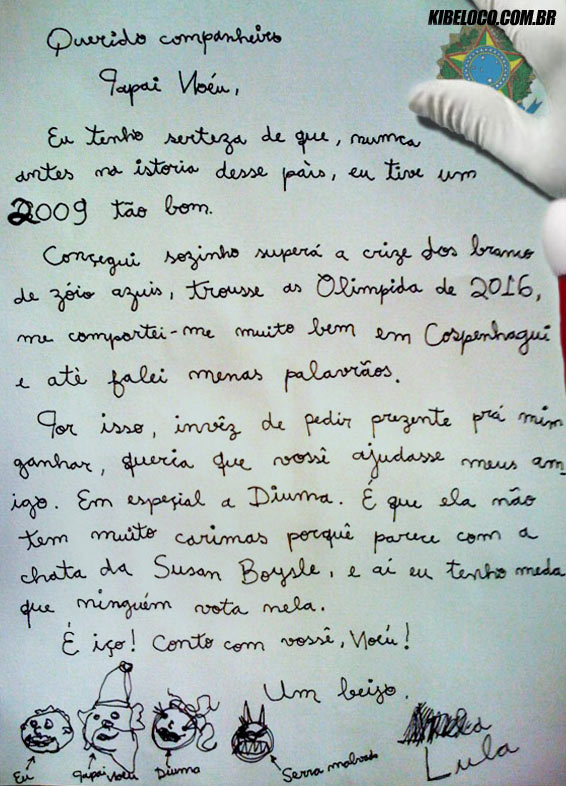 KIBELOCO.COM.BR
Querido companheiro
Papai Noéu,
Eu tenho serteza de que, nunca
antes na istoria desse païs, eu tive um
2009 tão bom.
Conçegui sozinho superá a crize dos branco
de zóio azuis, trousse as Olimpida de 2016,
me comportei-me muito bem em Cospenhagui
e atè falei menas palavrãos.
Por isso, invêz de pedir prezente prá mim
ganhar, queria que vossê ajudasse meus am_
igo. Em espeçial a Diuma. É que ela não
tem muito carimas porquê parece com a
chata da Susan Boysle, e aí eu tenho meda
que ninguém vota nela.
É iço! Conto com vossê, Noéu!
Um beijo.
Lula
Eu
Papai Noéu
Diuma
Serra malvado